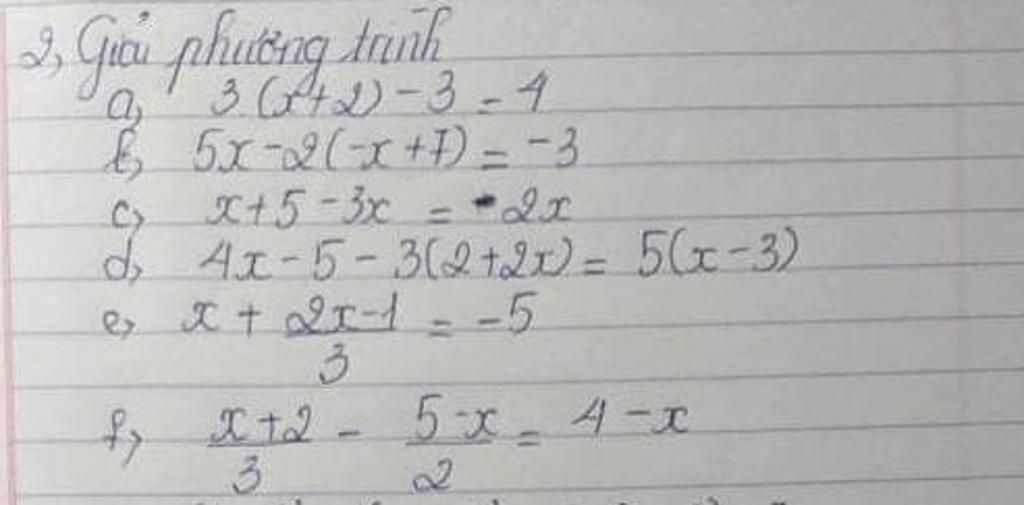 2, Giải phương trình
a, 3.(x+2) - 3 = 4
b, 5x - 2(-x + 7) = -3
c, x + 5 - 3x = -2x
d, 4x - 5 - 3(2+2x) = 5(x - 3)
e, x + \frac{2x-1}{3} = -5
f, \frac{x+2}{3} - \frac{5-x}{2} = 4 - x